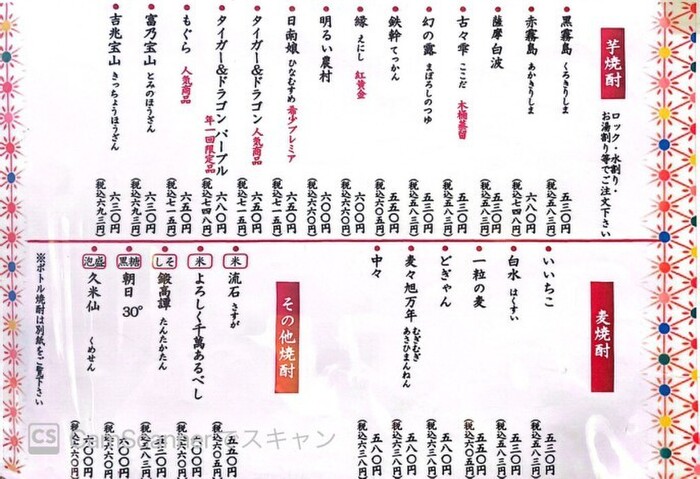 芋焼酎
ロック・水割り・
お湯割り等でご注文下さい
黒霧島 くろきりしま 五三〇円
(税込五八三円)
赤霧島 あかきりしま 六八〇円
(税込七四八円)
薩摩白波 五三〇円
(税込五八三円)
古々雫 ここだ 木桶蒸留 五三〇円
(税込五八三円)
幻の露 まぼろしのつゆ 五三〇円
(税込五八三円)
鉄幹 てっかん 五五〇円
(税込六〇五円)
縁 えにし 紅黄金 六〇〇円
(税込六六〇円)
明るい農村 六〇〇円
(税込六六〇円)
日南娘 ひなむすめ 希少プレミア 六五〇円
(税込七一五円)
タイガー&ドラゴン 人気商品 六五〇円
(税込七一五円)
タイガー&ドラゴン パープル 年一回限定品 六八〇円
(税込七四八円)
もぐら 人気商品 六五〇円
(税込七一五円)
富乃宝山 とみのほうざん 六三〇円
(税込六九三円)
吉兆宝山 きっちょうほうざん 六三〇円
(税込六九三円)
麦焼酎
いいちこ 五三〇円
(税込五八三円)
白水 はくすい 五三〇円
(税込五八三円)
一粒の麦 五五〇円
(税込六〇五円)
どぎゃん 五八〇円
麦々旭万年 むぎむぎあさひまんねん 五八〇円
中々 五八〇円
その他焼酎
米 流石 さすが 五五〇円
米 よろしく千萬あるべし
しそ 鍛高譚 たんたかたん
黒糖 朝日 30°
泡盛 久米仙 くめせん
※ボトル焼酎は別紙をご覧下さい
CS CamScannerでスキャン